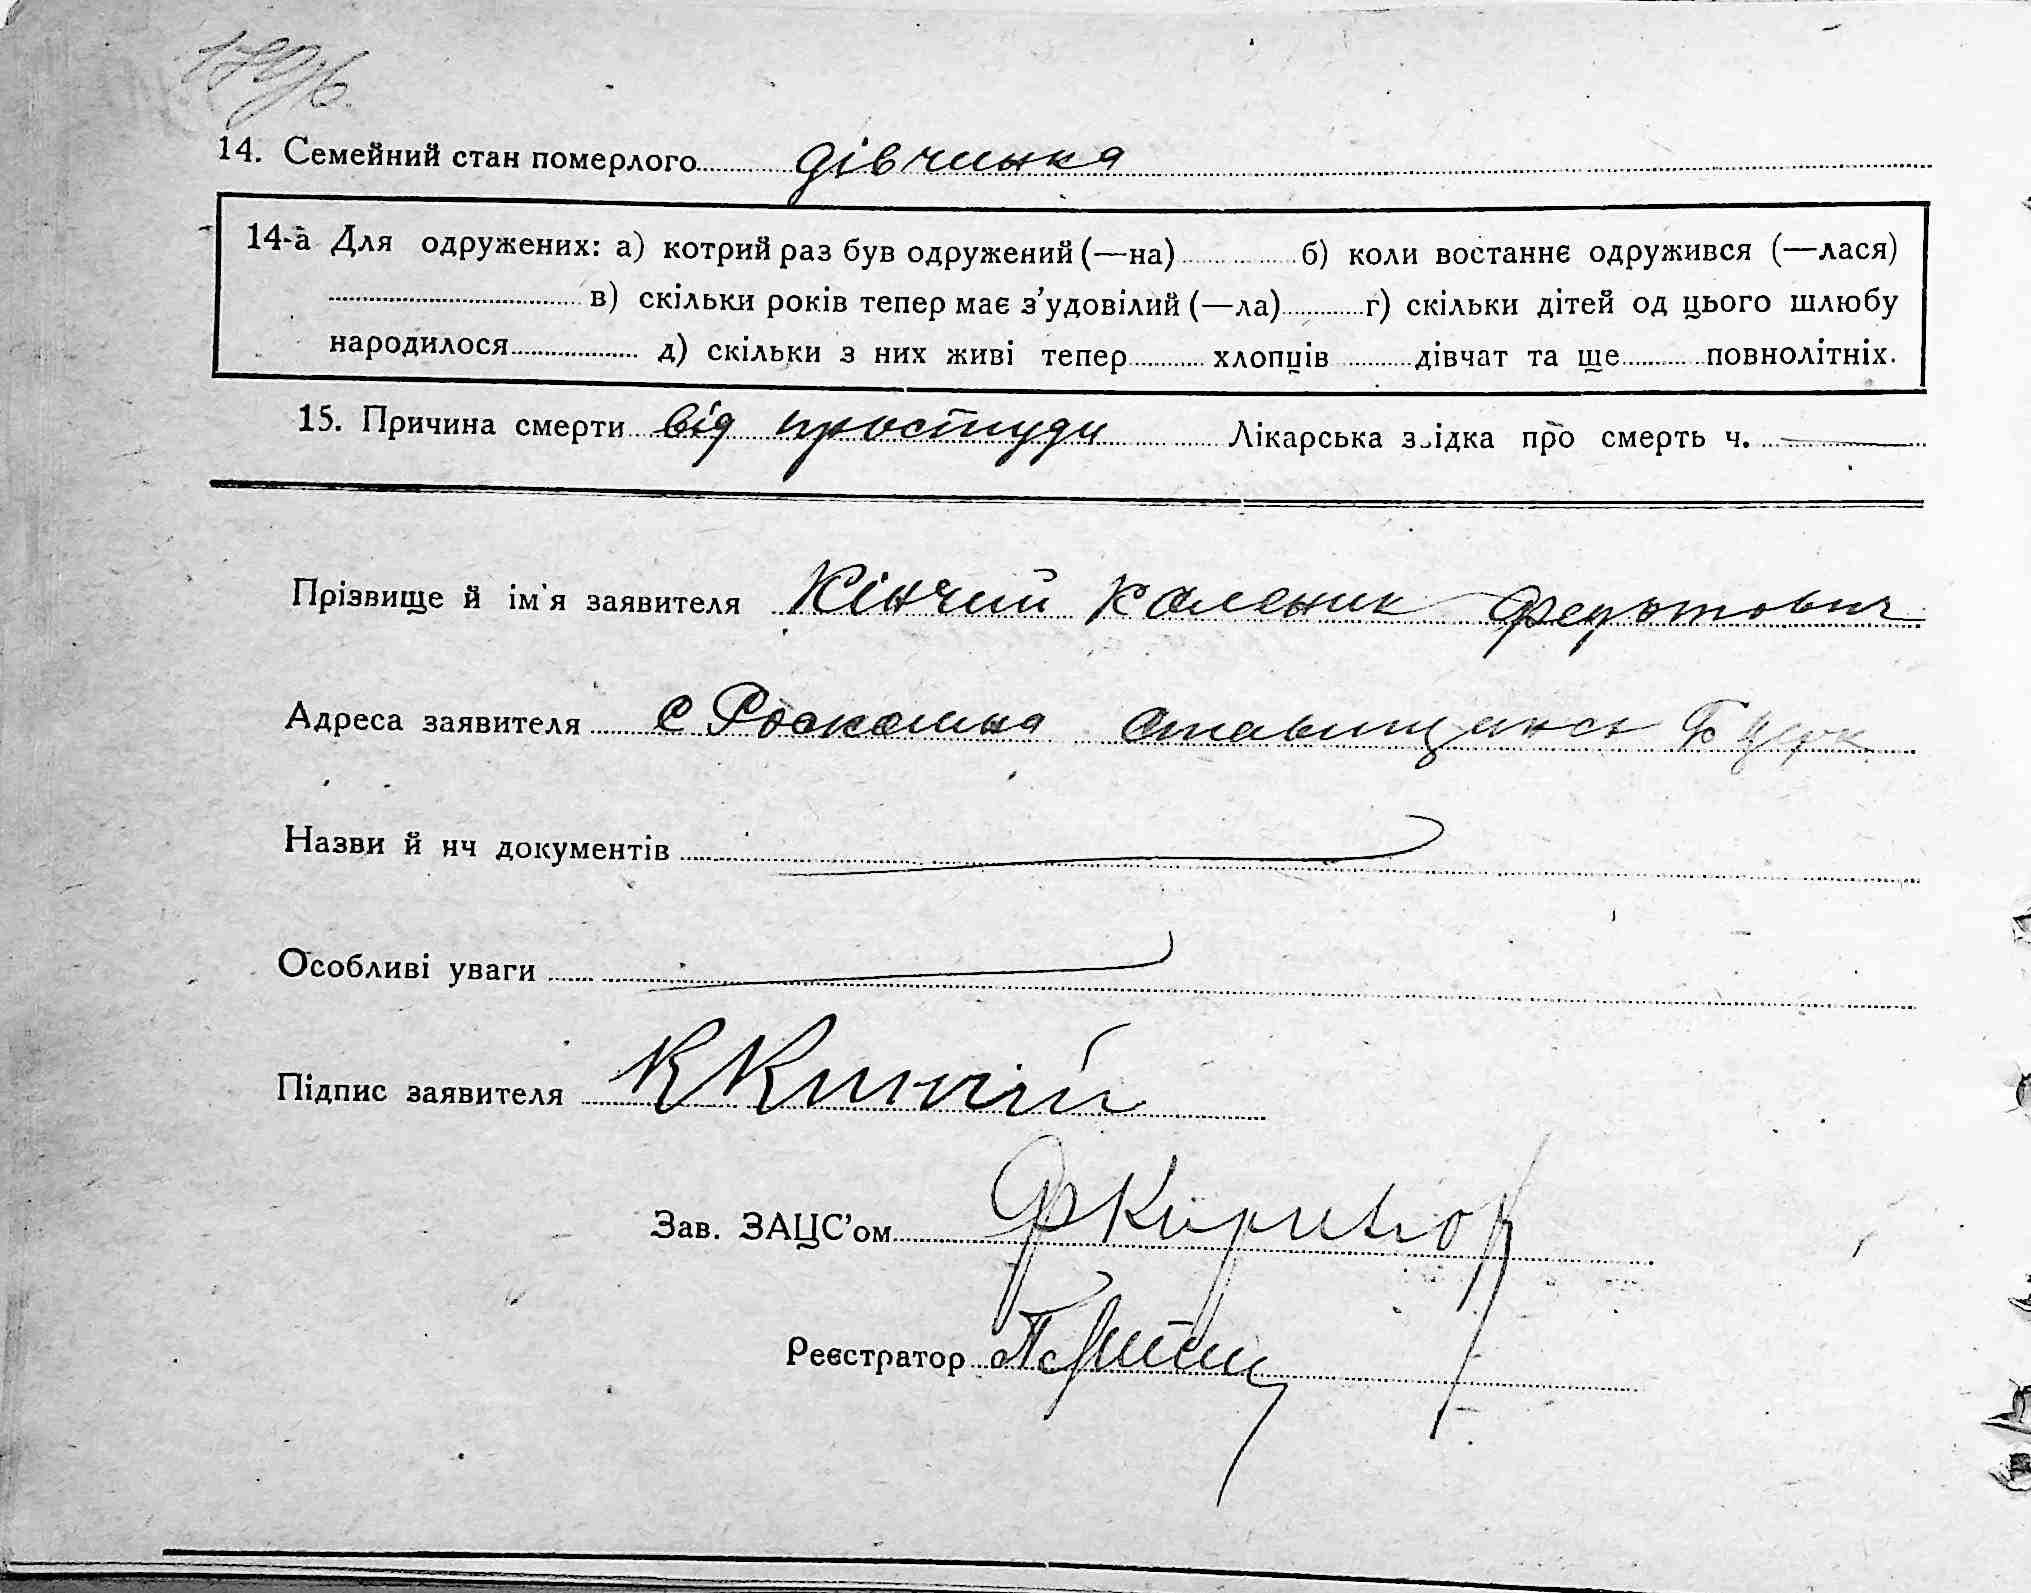 14. Семейний стан померлого дівчинка
14-а Для одружених: а) котрий раз був одружений (—на) б) коли востаннє одружився (—лася)
в) скільки років тепер має з'удовілий (—ла) г) скільки дітей од цього шлюбу
народилося д) скільки з них живі тепер хлопців дівчат та ще повнолітніх.
15. Причина смерти від простуди Лікарська звідка про смерть ч.
Прізвище й ім'я заявителя Кінчий Каленик Федотович
Адреса заявителя с Роскошна Ставищанськ Б Церк
Назви й нч документів
Особливі уваги
Підпис заявителя К Кинчій
Зав. ЗАЦС'ом
Реєстратор